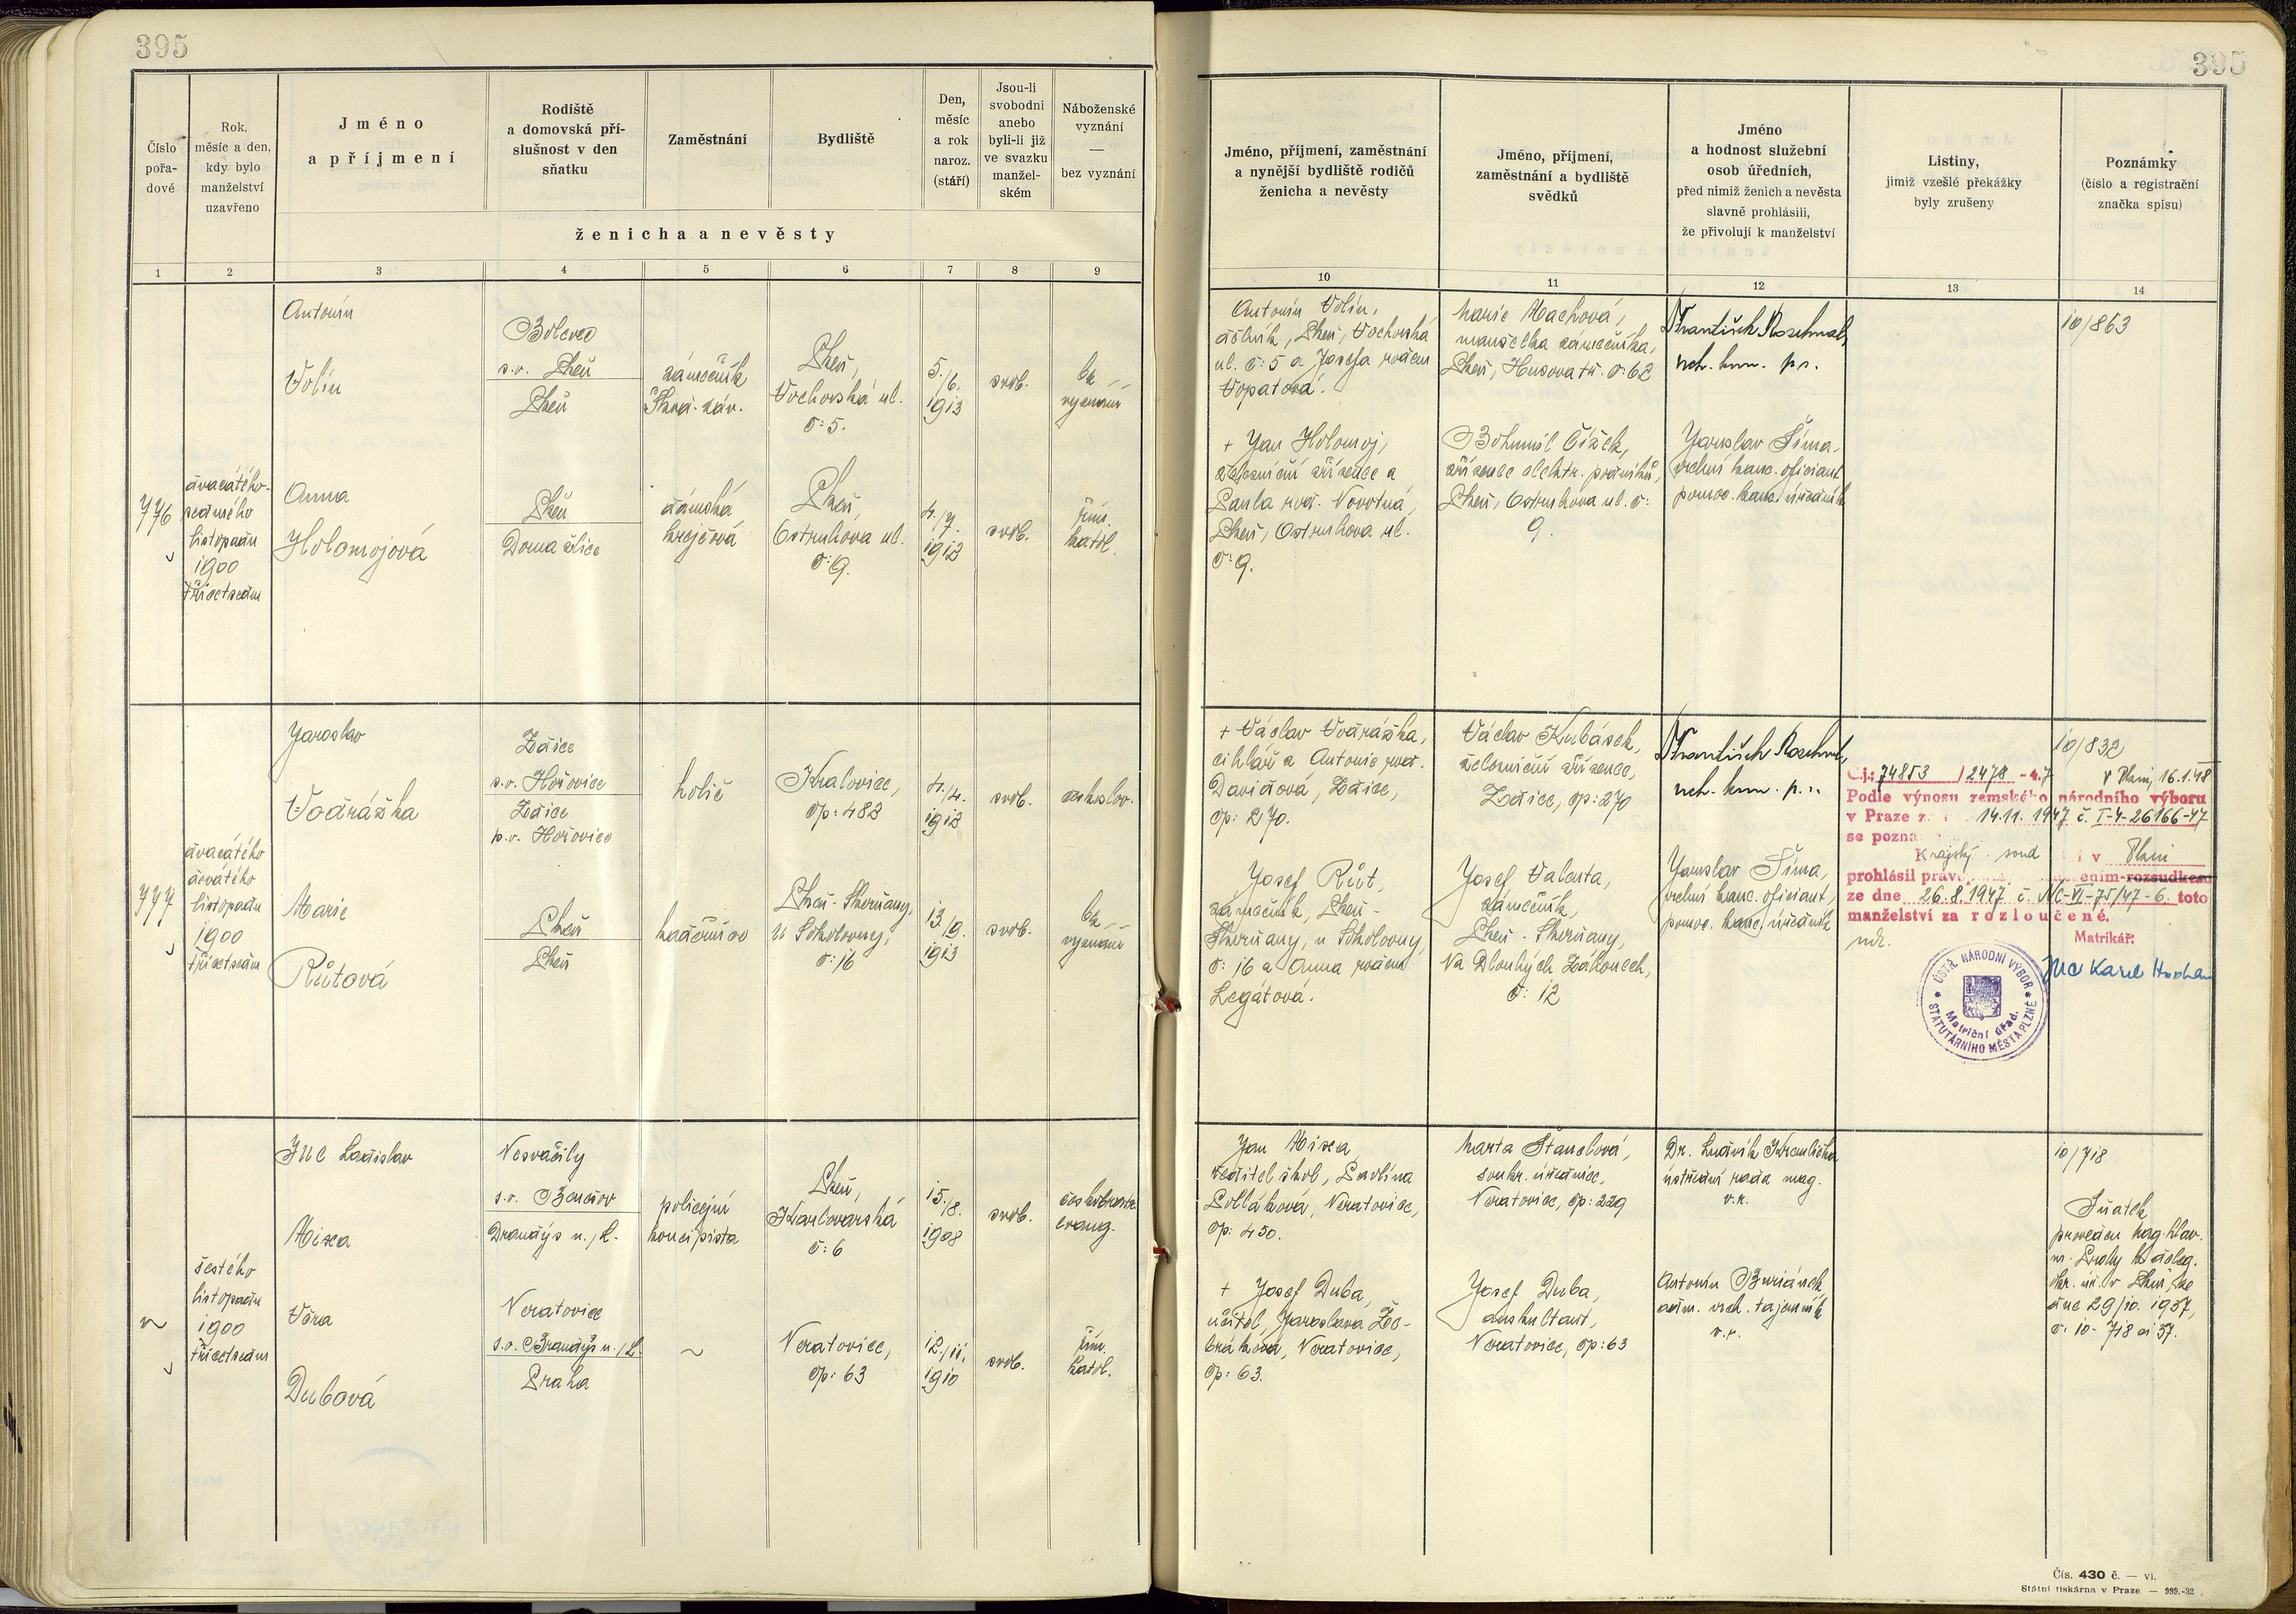 395
395
Číslo
pořa-
dové
Rok,
měsíc a den,
kdy bylo
manželství
uzavřeno
Jméno
a příjmení
Rodiště
a domovská pří-
slušnost v den
sňatku
Zaměstnání
Bydliště
Den,
měsíc
a rok
naroz.
(stáří)
Jsou-li
svobodni
anebo
byli-li již
ve svazku
manžel-
ském
Náboženské
vyznání
—
bez vyznání
ženicha a nevěsty
Jméno, příjmení, zaměstnání
a nynější bydliště rodičů
ženicha a nevěsty
Jméno, příjmení,
zaměstnání a bydliště
svědků
Jméno
a hodnost služební
osob úředních,
před nimiž ženich a nevěsta
slavně prohlásili,
že přivolují k manželství
Listiny,
jimiž vzešlé překážky
byly zrušeny
Poznámky
(číslo a registrační
značka spisu)
1 2 3 4 5 6 7 8 9 10 11 12 13 14
776
dvacátého-
sedmého
listopadu
1900
třicetsedm
Antonín
Volín
Bolevec
s.o. Plzeň
Plzeň
zámečník
Škod. záv.
Plzeň,
Vochovská ul.
č: 5.
5./6.
1913
svob.
bez
vyznání
Antonín Volín,
dělník, Plzeň, Vochovská
ul. č: 5 a Josefa rozená
Vopatová.
Marie Machová,
manželka zámečníka,
Plzeň, Husova tř. č: 62
František
rch. kom. p. r.
10/863
Anna
Holomojová
Plzeň
Domažlice
dámská
krejčová
Plzeň,
Ostruhova ul.
č: 9.
4./7.
1912
svob.
řím.
katol.
+ Jan Holomoj,
železniční zřízenec a
Paula roz. Novotná,
Plzeň, Ostruhova ul.
č: 9.
Bohumil Čížek,
zřízenec elektr. podniků,
Plzeň, Ostruhova ul. č:
9.
Jaroslav Šíma,
vrchní kanc. oficiant
pomoc. kanc. úředník
777
dvacátého
devátého
listopadu
1900
třicetsedm
Jaroslav
Vodrážka
Zdice
s.o. Hořovice
Zdice
p.o. Hořovice
holič
Kralovice,
čp: 482
4./4.
1912
svob.
českoslov.
+ Václav Vodrážka,
cihlář a Antonie roz.
Davidová, Zdice,
čp: 270.
Václav Kubásek,
železniční zřízenec,
Zdice, čp: 270
František
rch. kom. p. r.
10/832
Č.j.: 74853 / 2478 - 47
V Plzni, 16.1.48
Podle výnosu zemského národního výboru
v Praze z 14.11. 1947 č. I-4-26166-47
se pozna
Krajský soud v Plzni
prohlásil práv ením rozsudkem
ze dne 26.8.1947 č. Nc-VI-75/47-6. toto
manželství za rozloučené.
Matrikář:
JUC Karel
ÚSTŘ. NÁRODNÍ VÝBOR
STATUTÁRNÍHO MĚSTA PLZNĚ
Matriční úřad.
Marie
Růtová
Plzeň
Plzeň
kadeřnice
Plzeň-Skvrňany,
U Sokolovny,
č: 16
13./9.
1913
svob.
bez
vyznání
Josef Růt,
zámečník, Plzeň-
Skvrňany, u Sokolovny,
č: 16 a Anna rozená
Legátová.
Josef Valenta,
zámečník,
Plzeň-Skvrňany,
Na Dlouhých Záhonech,
č: 12
Jaroslav Šíma,
vrchní kanc. oficiant,
pomoc. kanc. úředník
šestého
listopadu
1900
třicetsedm
JUC Ladislav
Misea
Nesvačily
s.o. Benešov
Brandýs n./L.
policejní
koncipista
Plzeň,
Karlovarská
č: 6
15./8.
1908
svob.
českobratr.
evang.
Jan Misea,
ředitel škol, Pavlína
Polláková, Neratovice,
čp: 450.
Marta Štanclová,
soukr. úřednice,
Neratovice, čp: 229
Dr. Ludvík Kremlička
ústřední rada mag.
v.r.
10/718
Sňatek
proveden mag. hlav.
m. Prahy k deleg.
okr. úř. v Plzni, ze
dne 29/10. 1937,
č: 10-718 ai 37.
Věra
Dubová
Neratovice
s.o. Brandýs n./L.
Praha
Neratovice,
čp: 63
12./11.
1910
svob.
řím.
katol.
+ Josef Duba,
učitel, Jaroslava Že-
bráková, Neratovice,
čp: 63.
Josef Duba,
auskultant,
Neratovice, čp: 63
Antonín Buriánek,
adm. vrch. tajemník
v.r.
Čís. 430 č. — vi.
Státní tiskárna v Praze. — 999.-32